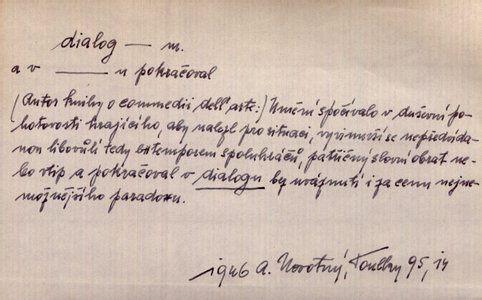 dialog — m.
a v —— u pokračoval
(Autor knihy o commedii dell'arte:) Umění spočívalo v duševní po-
hotovosti hrajícího, aby nalezl pro situaci, vyvinuvší se nepředvída-
nou libovůlí tedy extemporem spoluhráčů, patřičný slovní obrat ne-
bo vtip a pokračoval v dialogu bez uváznutí i za cenu nejne-
možnějšího paradoxu.
1946 A. Novotný, Toulky 95, 14